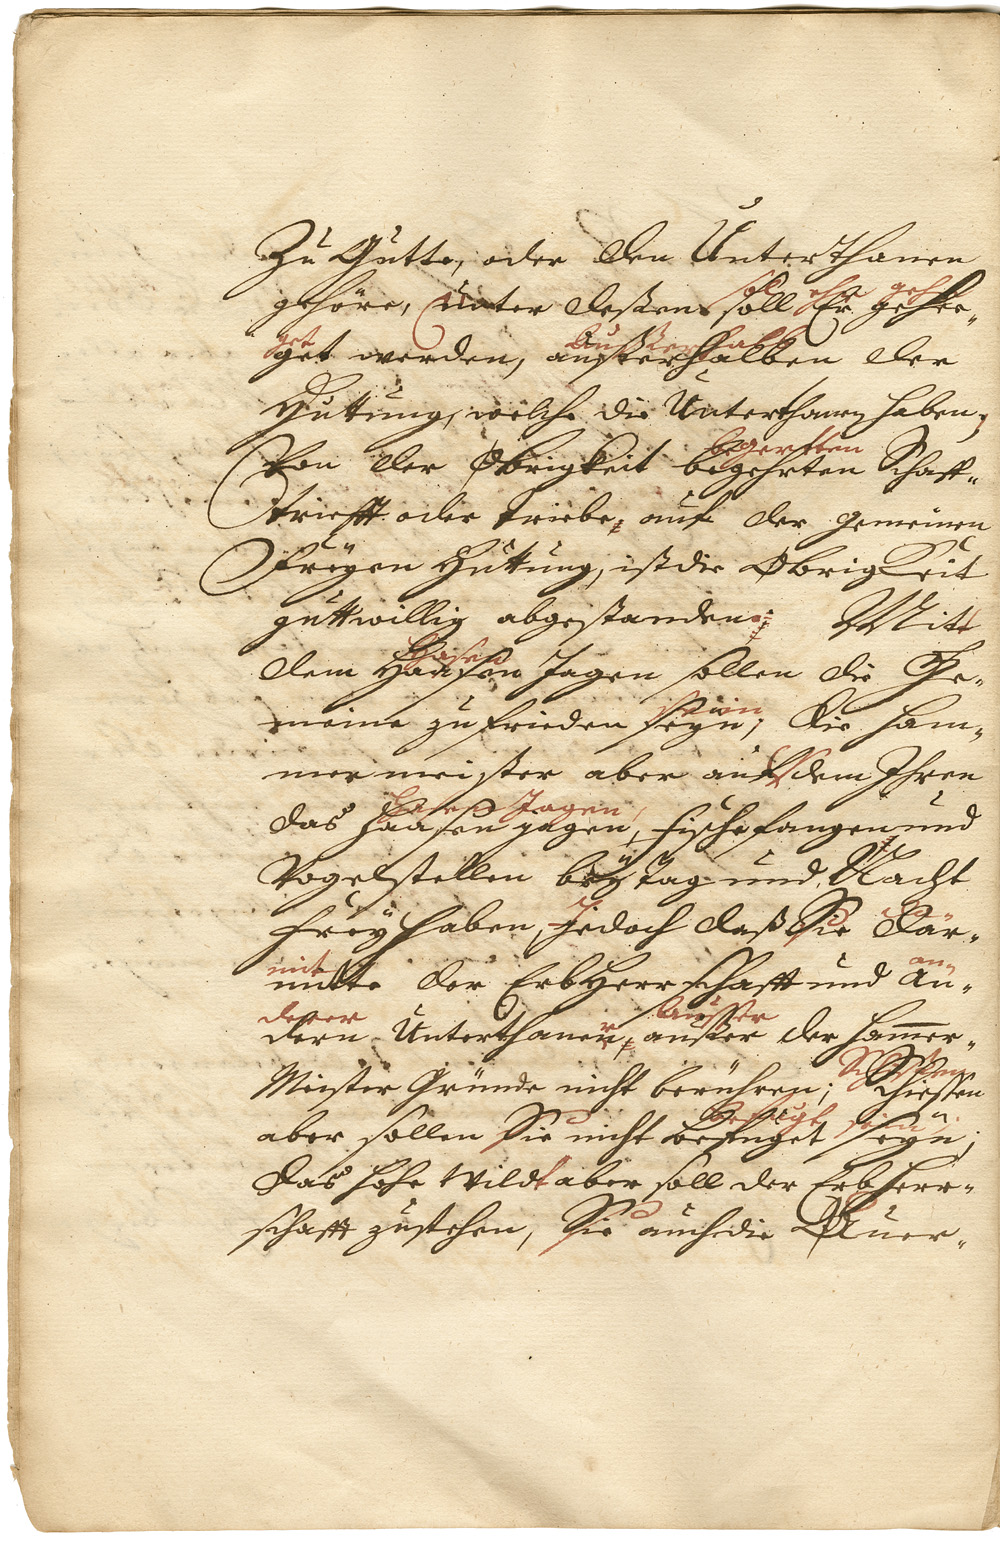 Zu Gutte, oder den Unterthanen
soll ehr geh
gehöre, Unter deßen soll Er gehee„
get außerhalb
get werden, außerhalben der
Huttung, welche die Unterthanen haben,
begerten
Von der Obrigkeit begehrten Schaff„
trifft oder triebe, auf der gemeinen
Freyen Huttung, ist die Obrigkeit
guttwillig abgestanden; Mitt
Hasen
dem Haasen Jagen sollen die Ge„
sein
meine zufrieden seyn; Die Ham„
mermeister aber auf dem Ihren
Hasen Jagen,
das Haasen jagen, fischefangen und
Vogelstellen bey tag und Nacht
Frey haben, Jedoch daß Sie Dar„
mit an„
mitte der ErbHerrschafft und An„
derer ausser
dern Unterthanen, außer der Ham̅er„
Schissen
Meister Gründe nicht berühren; Schiessen
befugt sein;
aber sollen Sie nicht befuget seyn;
das hohe Wildt aber soll der ErbHerr„
schafft zustehen, Sie auch die Auer„